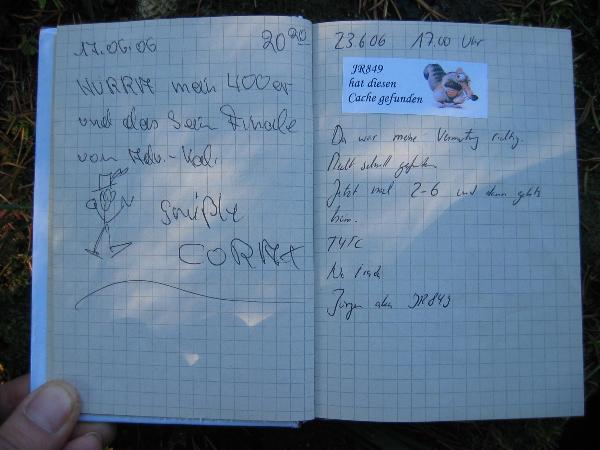 17.06.06 20 20
HURRA mein 400er
und das beim Finale
vom Adv.-Kal.
smiple
CORAX
23.6.06 17.00 Uhr
JR849
hat diesen
Cache gefunden
Da war meine Vermutung richtig.
Recht schnell gefunden
Jetzt mal 2-6 und dann gehts
heim.
T4TC
No trade
Jürgen alias JR849